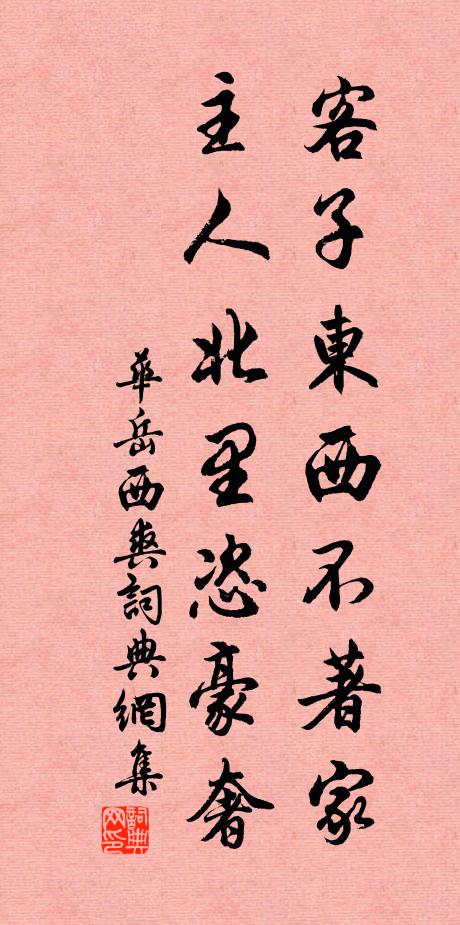 客子東西不著家
主人北里恣豪奢
華岳西爽詞典網集
詞典
网印